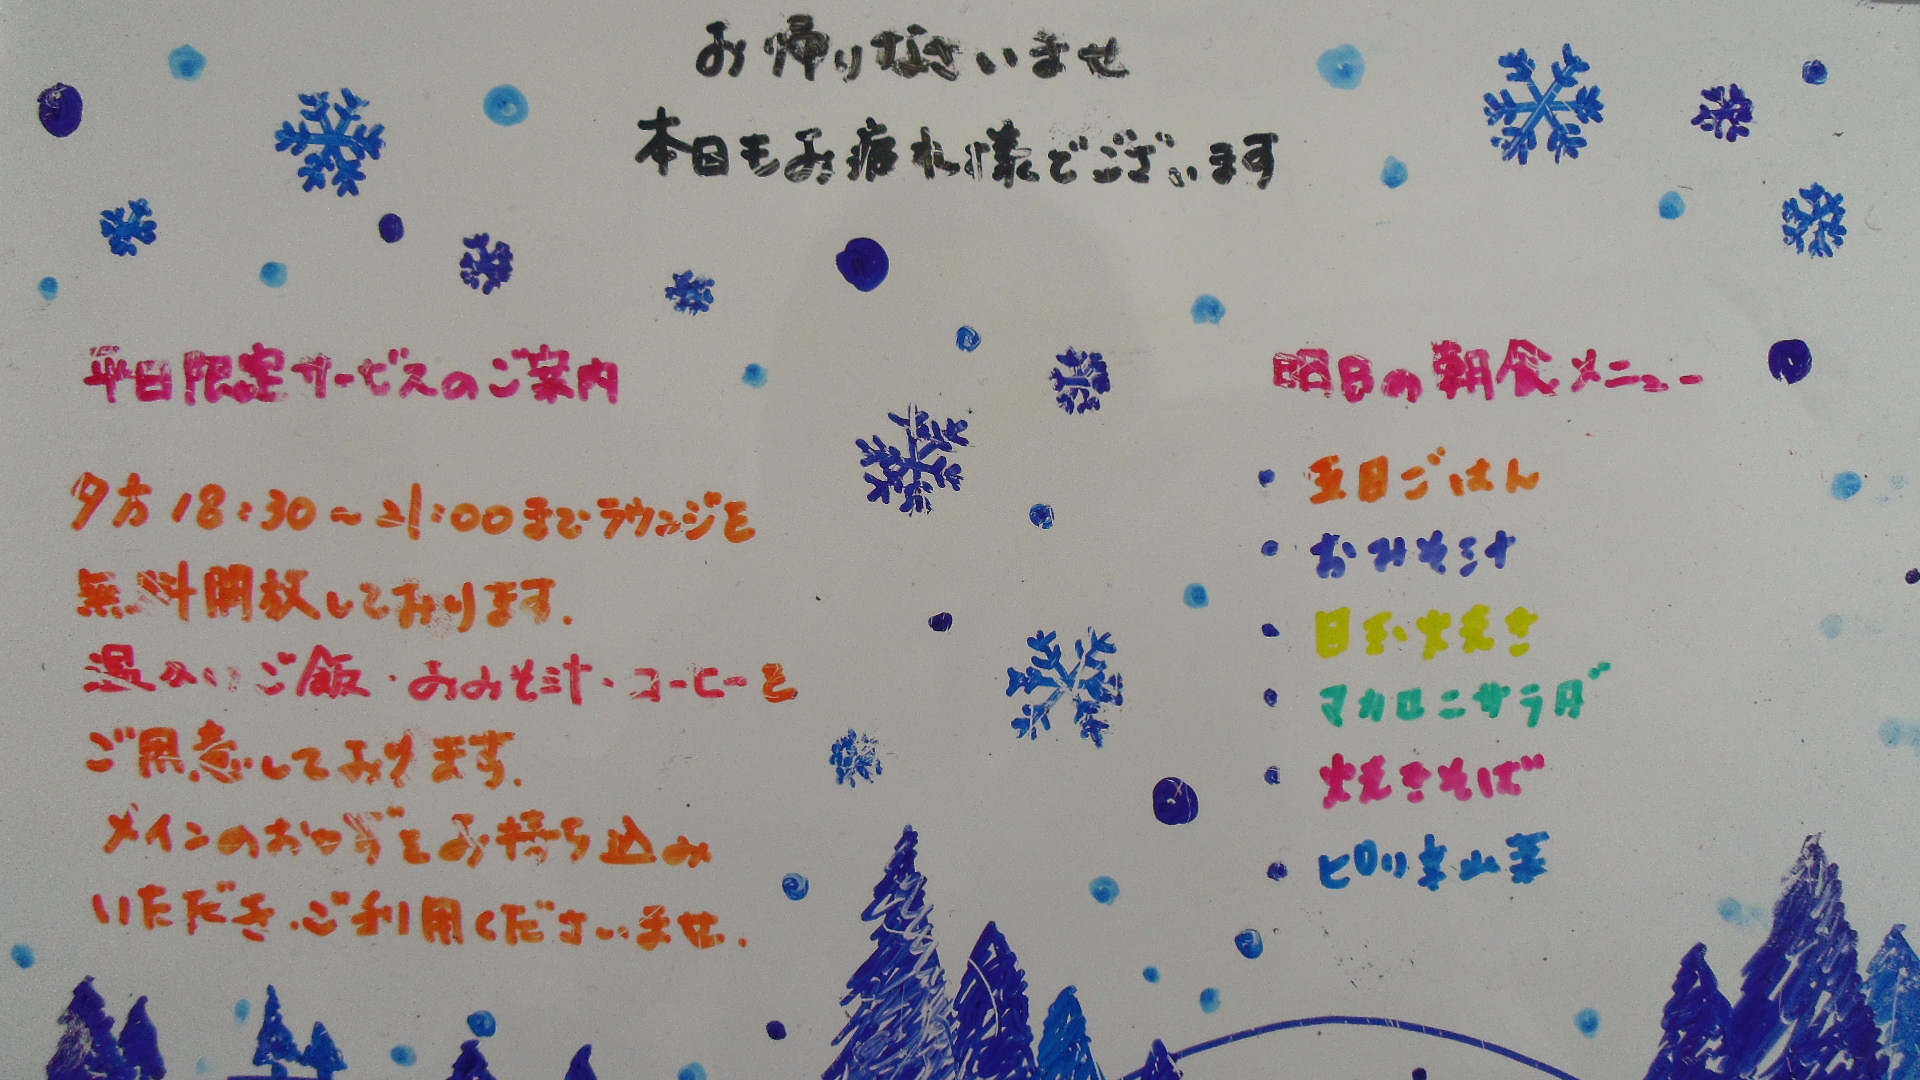 お帰りなさいませ
本日もお疲れ様でございます
平日限定サービスのご案内
夕方18:30~21:00までラウンジを
無料開放しております.
温かいご飯・おみそ汁・コーヒーを
ご用意しております.
メインのおかずをお持ち込み
いただき、ご利用くださいませ.
明日の朝食メニュー
・五目ごはん
・おみそ汁
・目玉焼き
・マカロニサラダ
・焼きそば
・ピリ辛山菜